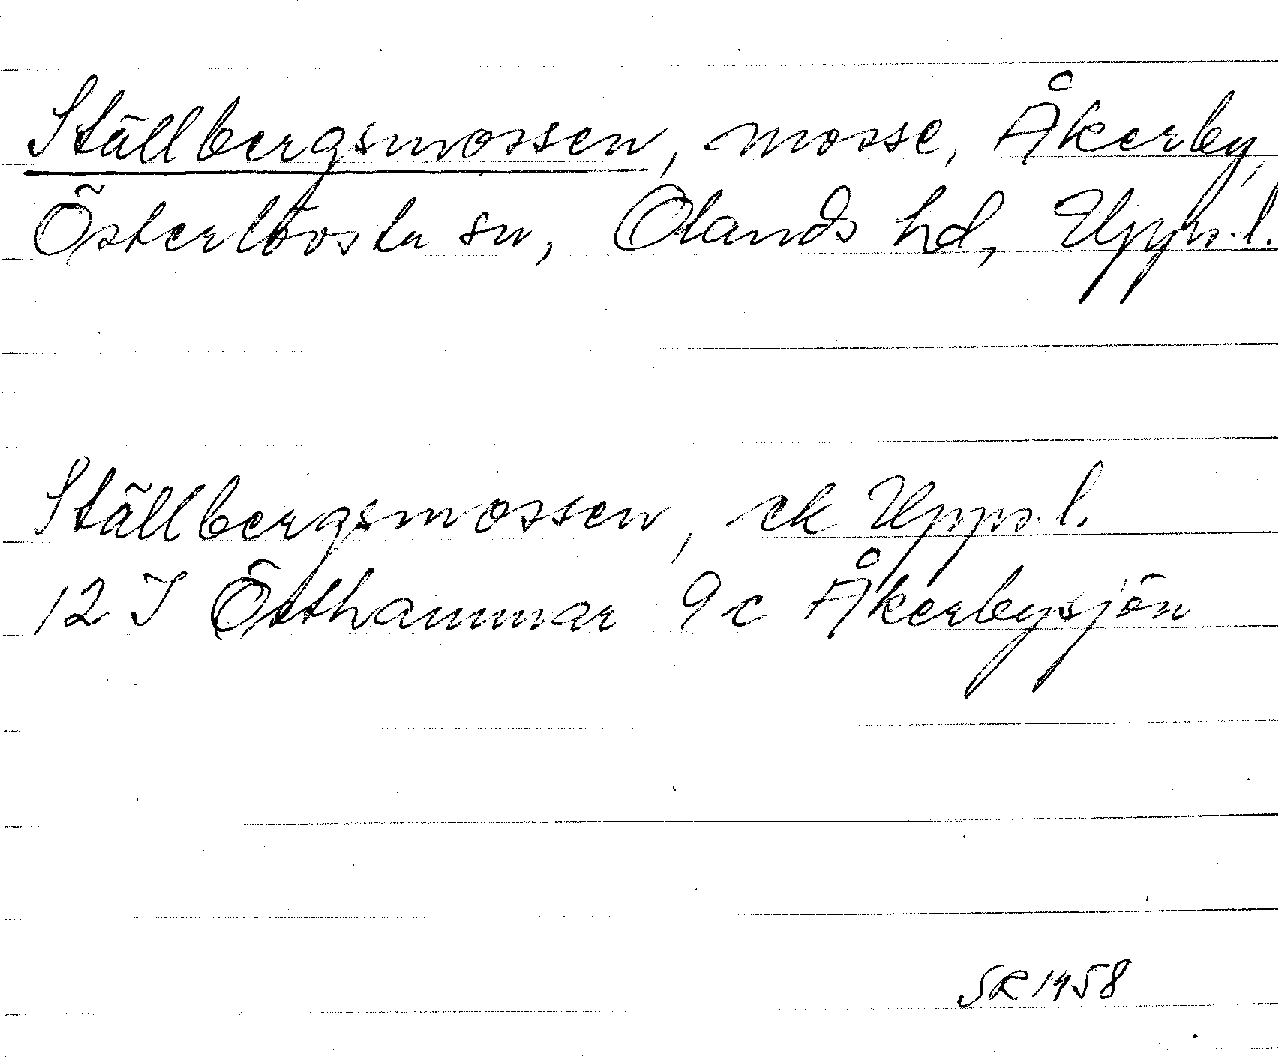 Ställbergsmossen, mosse, Åkerby,
Österlövsta sn, Olands hd, Upps.l.
Ställbergsmossen, ek Upps.l.
12 I Östhammar 9c Åkerbysjön
SR 1958